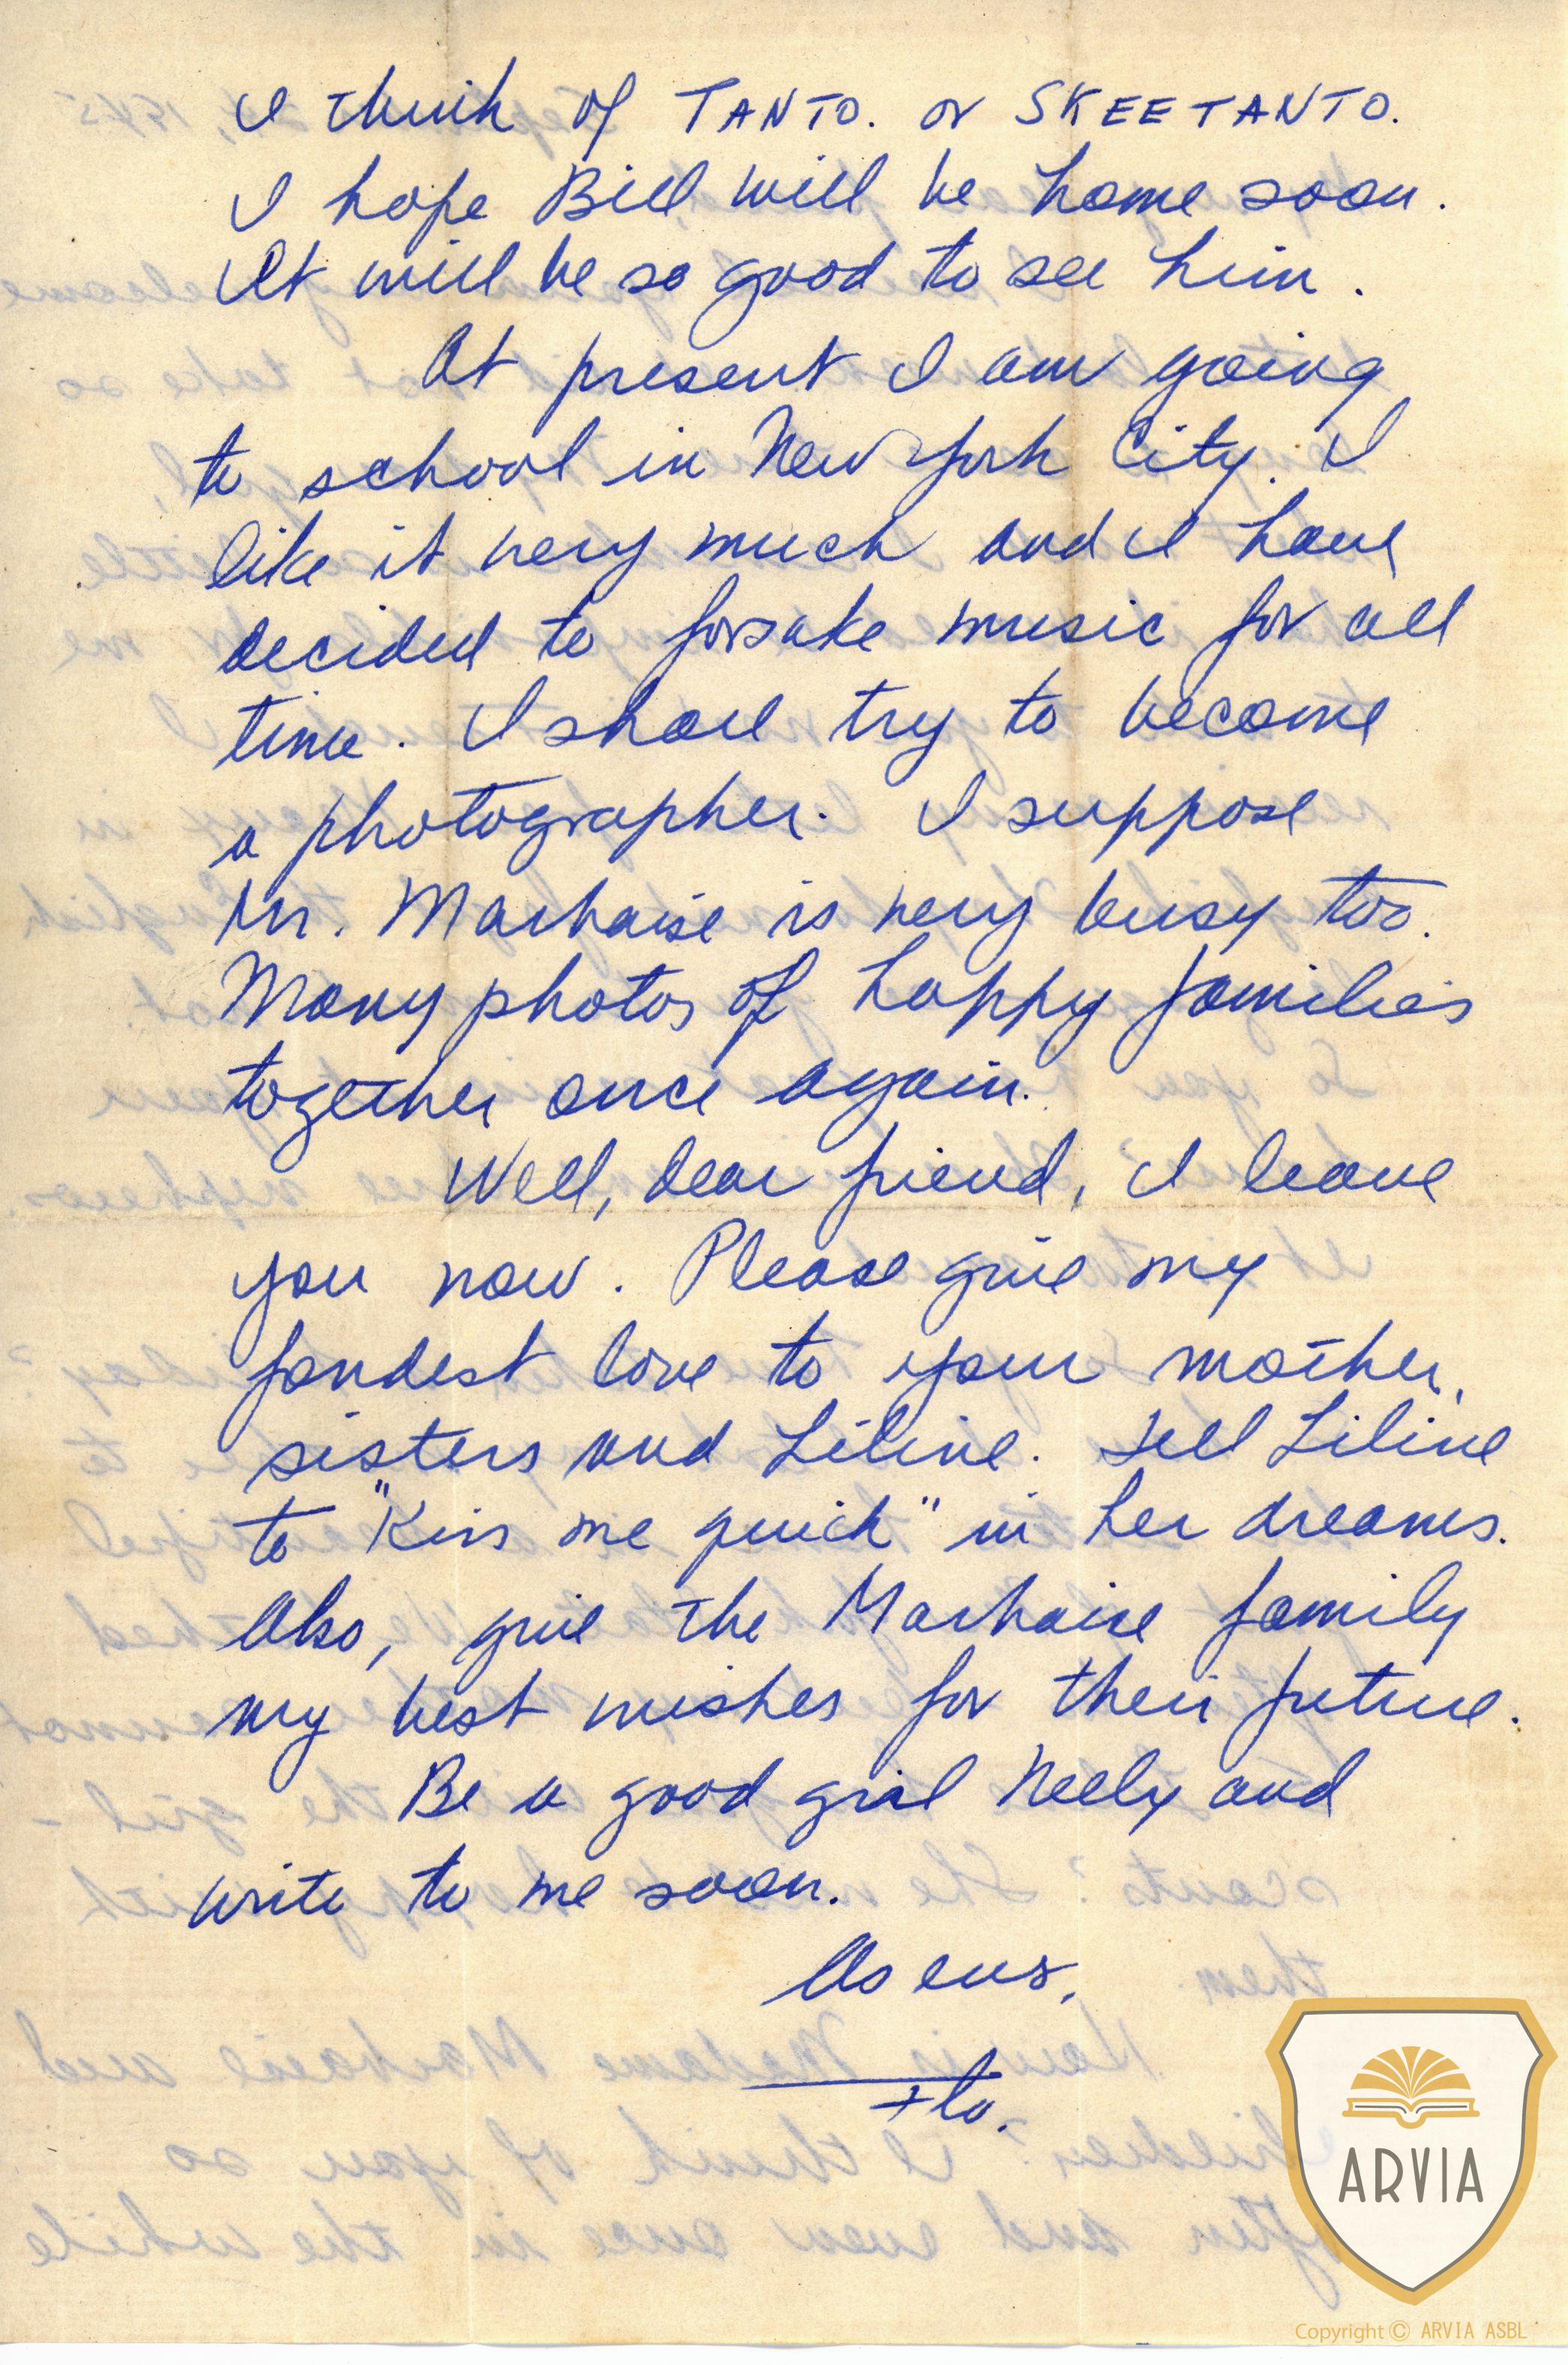 I think of TANTO. or SKEETANTO.
I hope Bill will be home soon.
It will be so good to see him.
At present I am going
to school in New York City. I
like it very much and I have
decided to forsake music for all
time. I shall try to become
a photographer. I suppose
Mr. Marhaise is very busy too.
Many photos of happy families
together once again.
Well, dear friend, I leave
you now. Please give my
fondest love to your mother,
sisters and Liline. Tell Liline
to "Kiss me quick" in her dreams.
Also, give the Marhaise family
my best wishes for their future.
Be a good girl Nelly and
write to me soon.
As ever,
ARVIA
Copyright © ARVIA ASBL